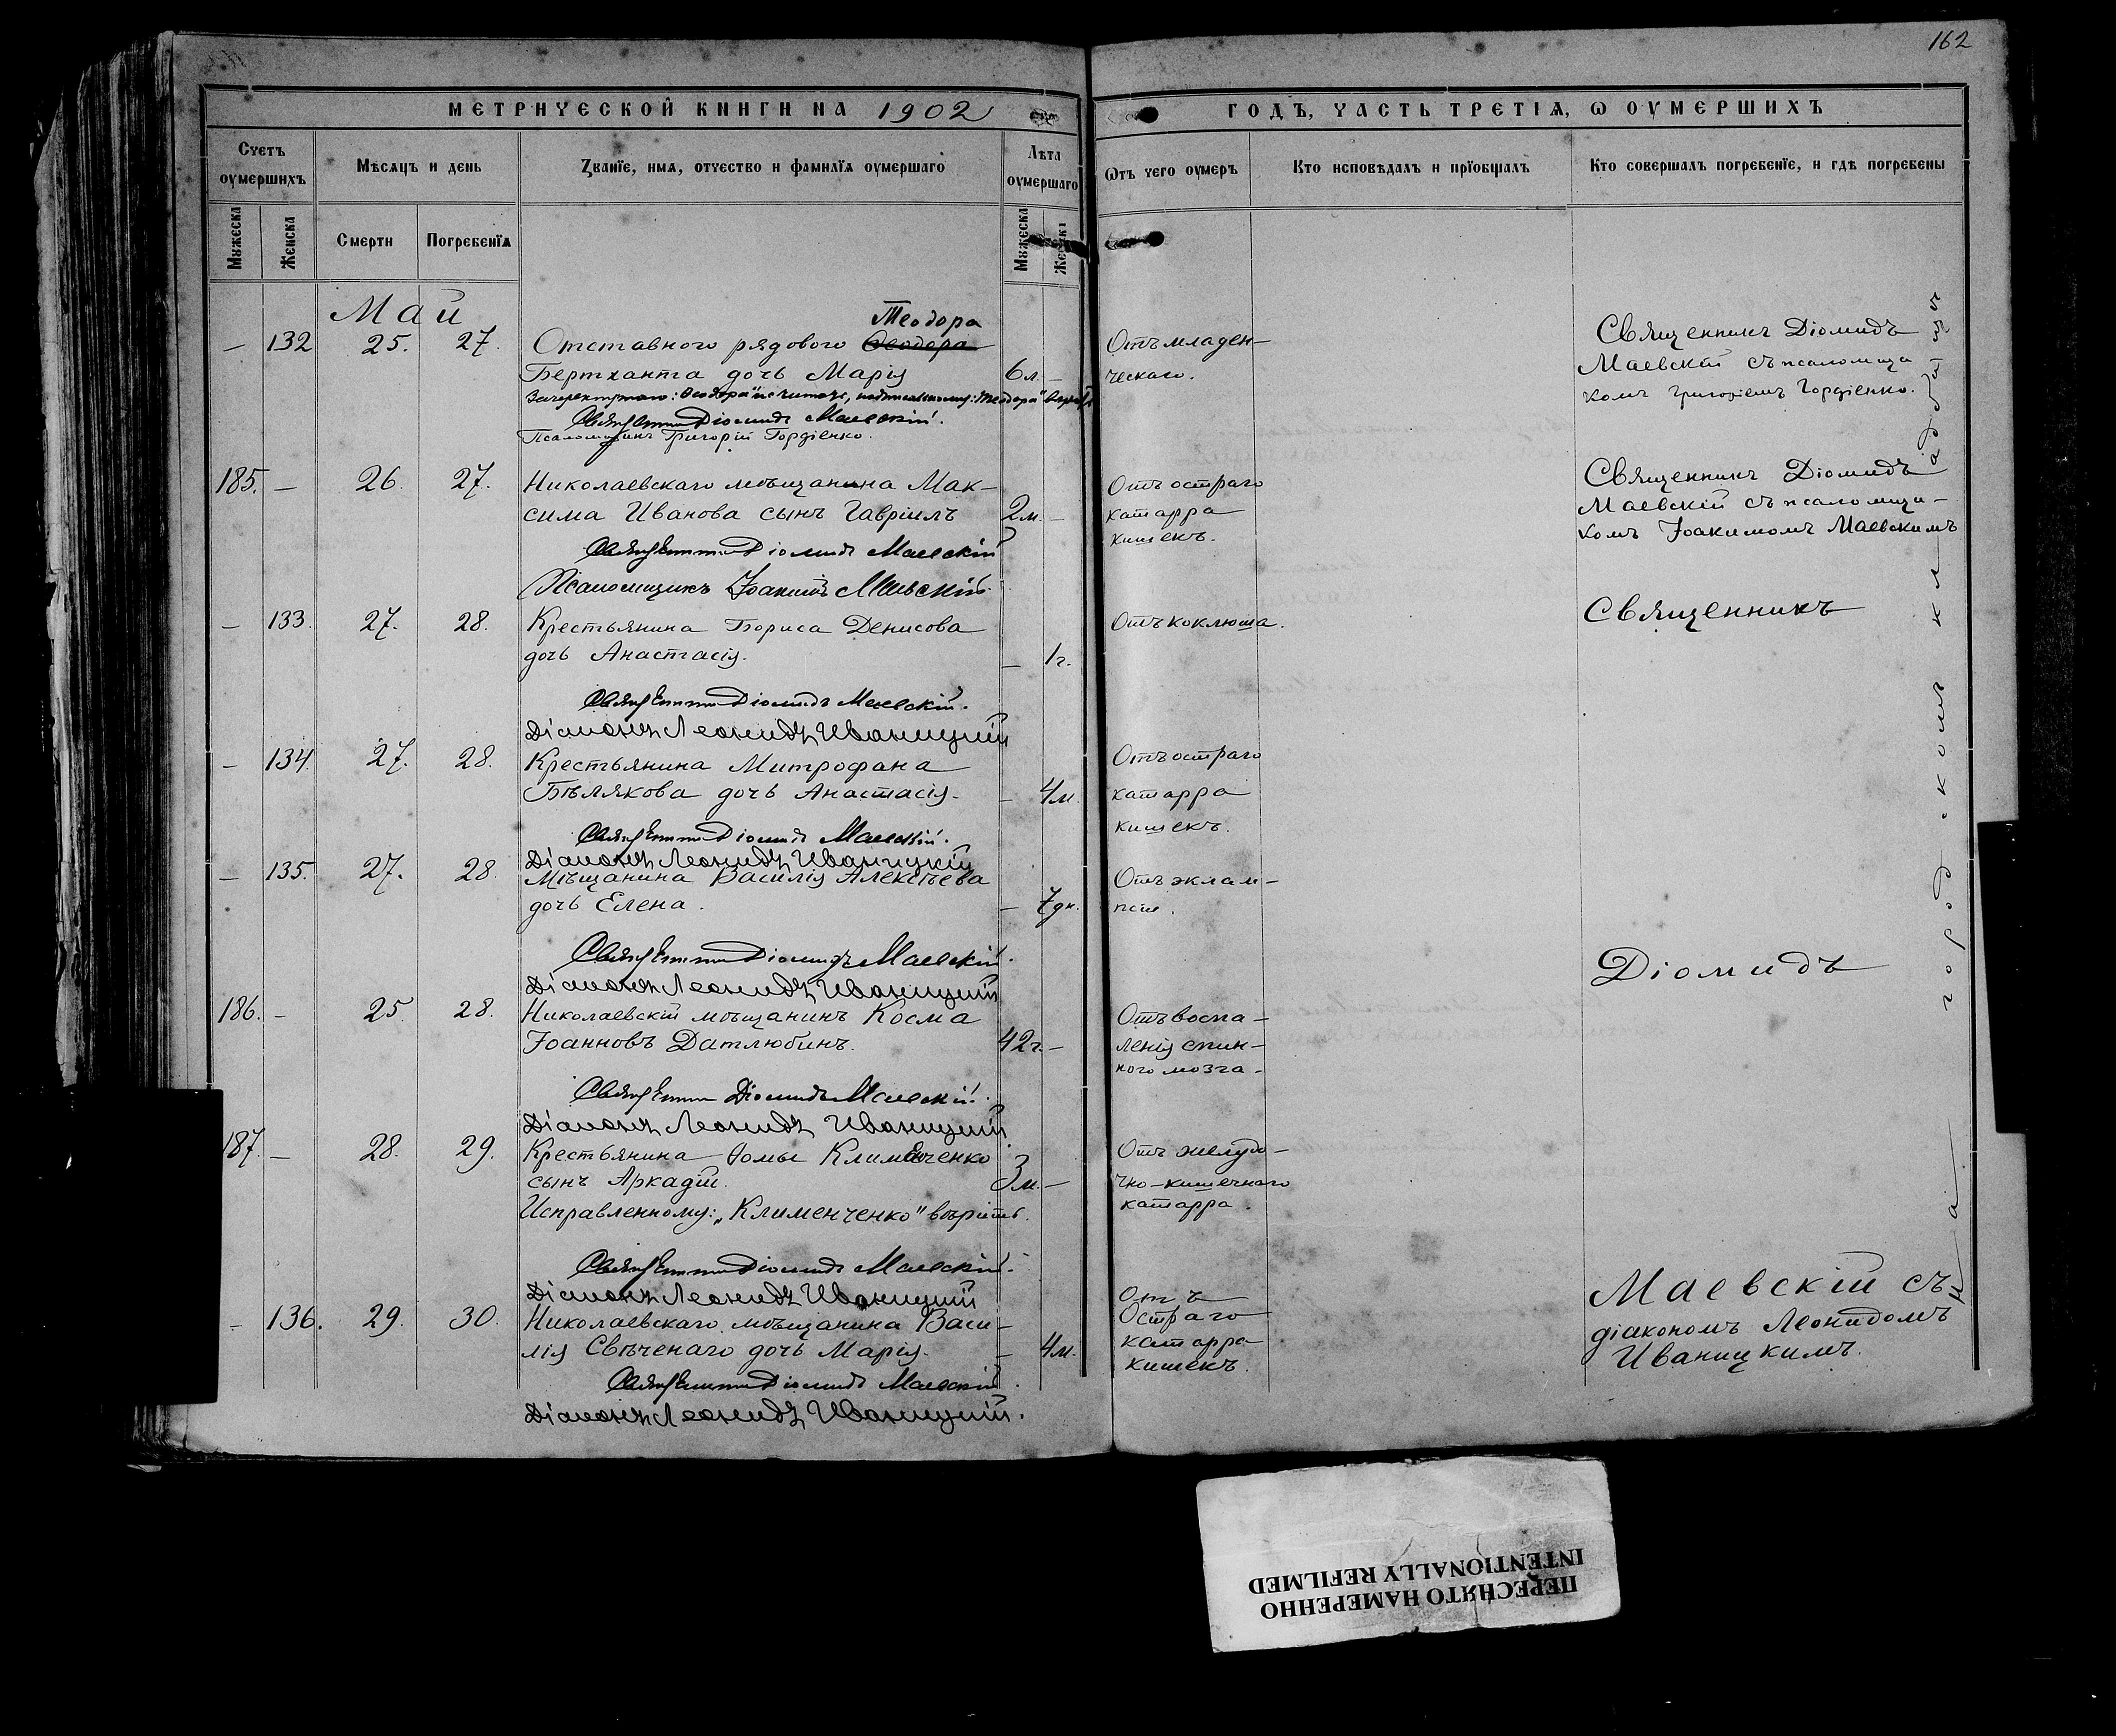 162
МЕТРИЧЕСКОЙ КНИГИ НА 1902
ГОДЪ, ЧАСТЬ ТРЕТІѦ, Ѡ ОУМЕРШИХЪ
Счетъ оумершихъ
Мѣсѧцъ и день
Званїе, имѧ, отчество и фамилїѧ оумершаго
Лѣта оумершаго
Ѿтъ чего оумеръ
Кто исповѣдалъ и прїобщалъ
Кто совершалъ погребенїе, и гдѣ погребены
Мужеска
Женска
Смерти
Погребенїѧ
Мужеска
Женска
Май
Теодора
— 132 25. 27. Отставного рядового Ѳеодора
Бертханта дочь Марія 6л. —
Зачеркнутаго: "Ѳеодора" не читать, надписанному: "Теодора" вѣрить
Священникъ Діомидъ Маевскій.
Псаломщикъ Григорій Гордіенко.
Отъ младен-
ческаго.
Священникъ Діомидъ
Маевскій съ псаломщи
комъ Григоріемъ Гордіенко.
185. — 26. 27. Николаевскаго мѣщанина Мак-
сима Иванова сынъ Гавріилъ 2м. —
Священникъ Діомидъ Маевскій
Псаломщикъ Іоакимъ Маевскій.
Отъ остраго
катарра
кишекъ.
Священникъ Діомидъ
Маевскій съ псаломщи-
комъ Іоакимомъ Маевскимъ
— 133. 27. 28. Крестьянина Бориса Денисова
дочь Анастасія. — 1г.
Священникъ Діомидъ Маевскій.
Діаконъ Леонидъ Иваницкій
Отъ коклюша.
Священникъ
— 134. 27. 28. Крестьянина Митрофана
Бѣлякова дочь Анастасія. — 4м.
Священникъ Діомидъ Маевскій.
Діаконъ Леонидъ Иваницкій
Отъ остраго
катарра
кишекъ.
— 135. 27. 28. Мѣщанина Василія Алексѣева
дочь Елена. — 7дн.
Священникъ Діомидъ Маевскій.
Діаконъ Леонидъ Иваницкій
Отъ эклам-
псіи.
Діомидъ
186. — 25. 28. Николаевскій мѣщанинъ Косма
Іоанновъ Датлюбинъ. 42г. —
Священникъ Діомидъ Маевскій.
Діаконъ Леонидъ Иваницкій.
Отъ воспа-
ленія спин-
ного мозга.
187. — 28. 29. Крестьянина Ѳомы Клименченко
сынъ Аркадій. 3м. —
Исправленному: „Клименченко" вѣрить.
Священникъ Діомидъ Маевскій.
Діаконъ Леонидъ Иваницкій
Отъ желудо-
чно-кишечнаго
катарра.
— 136. 29. 30. Николаевскаго мѣщанина Васи-
лія Свѣченаго дочь Марія. — 4м.
Священникъ Діомидъ Маевскій.
Діаконъ Леонидъ Иваницкій.
Отъ
Остраго
катарра
кишекъ.
Маевскій съ
діакономъ Леонидомъ
Иваницкимъ.
На городскомъ кладбищѣ
ПЕРЕСНЯТО НАМЕРЕННО
INTENTIONALLY REFILMED